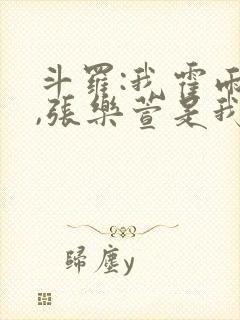 斗羅:我霍雨
,張樂萱是我
歸塵y